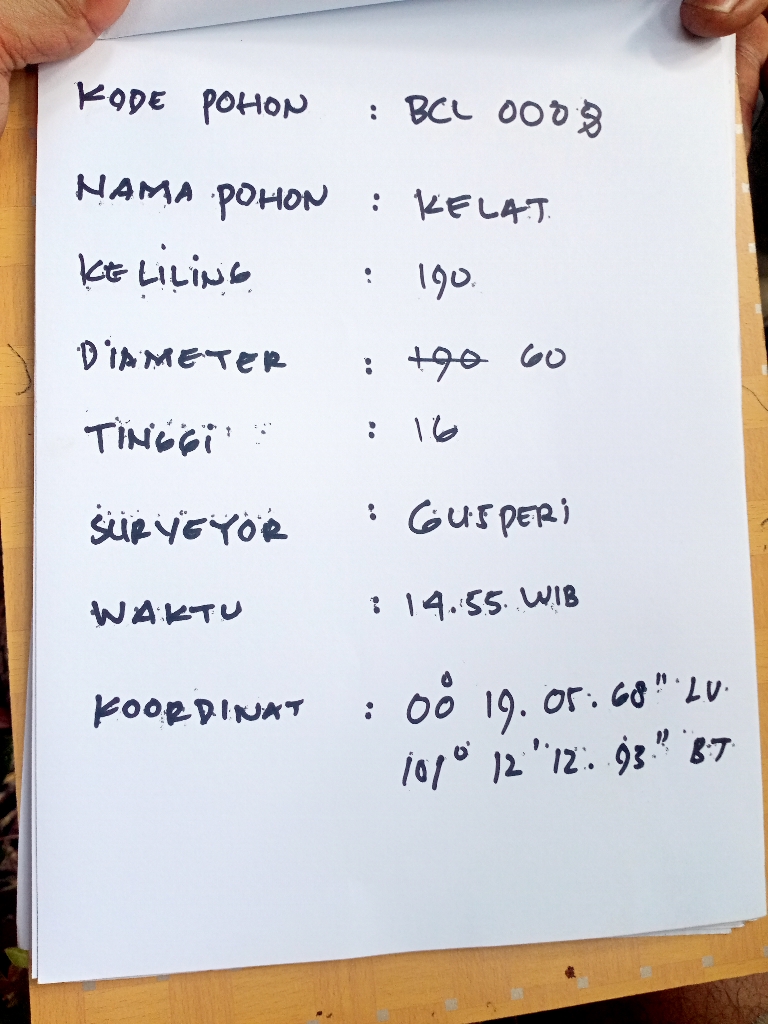 KODE POHON : BCL 0008
NAMA POHON : KELAT
KELILING : 190
DIAMETER : 190 60
TINGGI : 16
SURVEYOR : GUSPERI
WAKTU : 14.55 WIB
KOORDINAT : 00° 19. 05. 68" LU
101° 12' 12. 93" BT